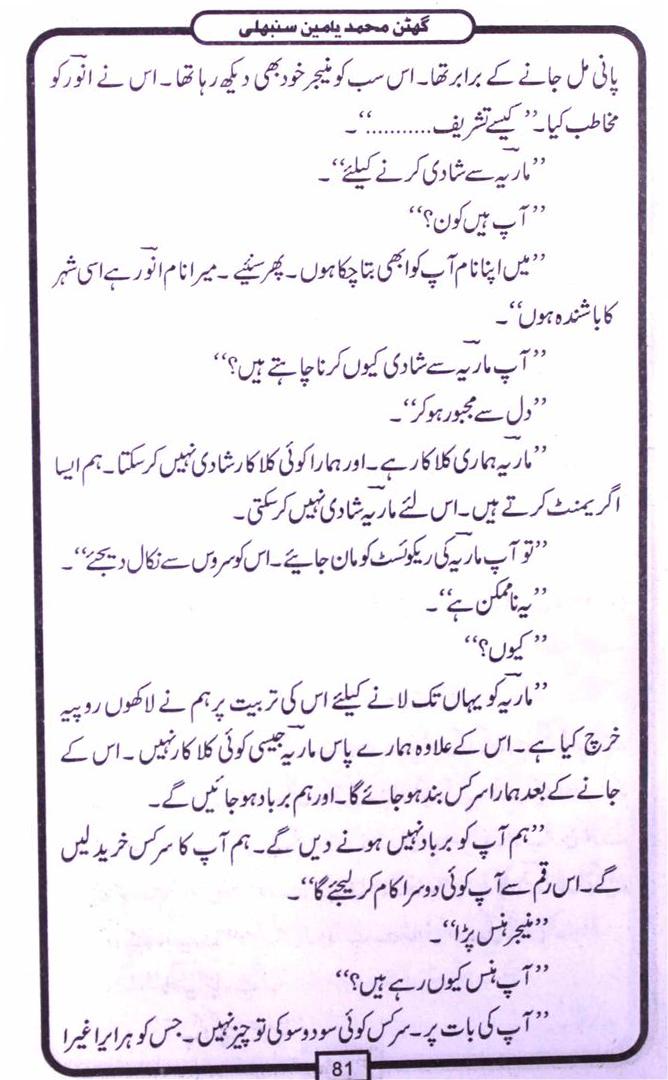 گھٹن محمد یامین سنبھلی
پانی مل جانے کے برابر تھا۔ اس سب کو منیجر خود بھی دیکھ رہا تھا۔ اس نے انوؔر کو
مخاطب کیا۔ ”کیسے تشریف..........“۔
”ماریہؔ سے شادی کرنے کیلئے“۔
”آپ ہیں کون؟“
”میں اپنا نام آپ کو ابھی بتا چکا ہوں۔ پھر سنئیے۔ میرا نام انوؔر ہے اسی شہر
کا باشندہ ہوں“۔
”آپ ماریہؔ سے شادی کیوں کرنا چاہتے ہیں؟“
”دل سے مجبور ہو کر“۔
”ماریہؔ ہماری کلا کار ہے۔ اور ہمارا کوئی کلا کار شادی نہیں کر سکتا۔ ہم ایسا
اگریمنٹ کرتے ہیں۔ اس لئے ماریہؔ شادی نہیں کر سکتی۔
”تو آپ ماریہؔ کی ریکوئسٹ کو مان جائیے۔ اس کو سروس سے نکال دیجئے“۔
”یہ ناممکن ہے“۔
”کیوں؟“
”ماریہؔ کو یہاں تک لانے کیلئے اس کی تربیت پر ہم نے لاکھوں روپیہ
خرچ کیا ہے۔ اس کے علاوہ ہمارے پاس ماریہؔ جیسی کوئی کلا کار نہیں۔ اس کے
جانے کے بعد ہمارا سرکس بند ہو جائے گا۔ اور ہم برباد ہو جائیں گے۔
”ہم آپ کو برباد نہیں ہونے دیں گے۔ ہم آپ کا سرکس خرید لیں
گے۔ اس رقم سے آپ کوئی دوسرا کام کر لیجئے گا“۔
”منیجر ہنس پڑا“۔
”آپ ہنس کیوں رہے ہیں؟“
”آپ کی بات پر۔ سرکس کوئی سو دو سو کی تو چیز نہیں۔ جس کو ہر ایرا غیرا
81